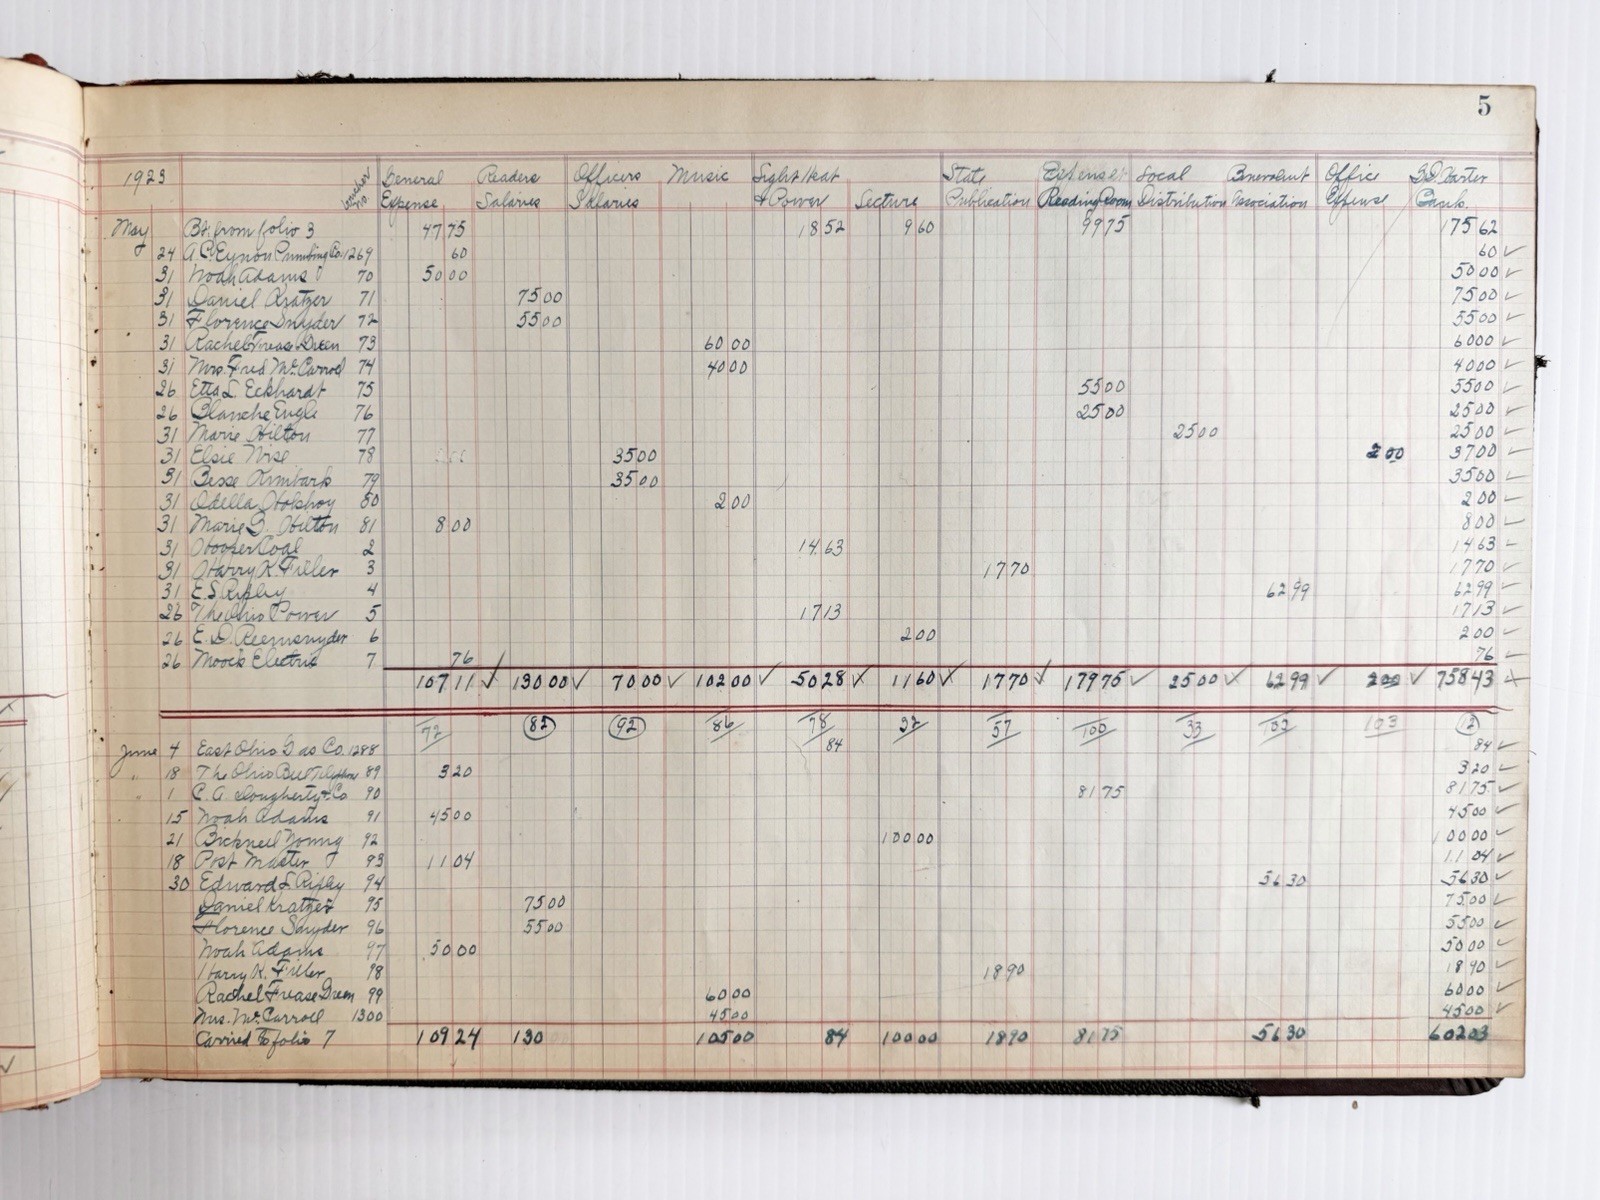 5
1923 Voucher No. General Expense Readers Salaries Officers Salaries Music Light Heat & Power Lecture State Publication Expense Reading Room Local Distribution Benevolent Association Office Expense Geo. D. Harter Bank
May Bt. from folio 3 47 75 18 52 9 60 99 75 175 62
24 A.C. Eynon Plumbing Co. 1269 60 60 ✓
31 Noah Adams 70 50 00 50 00 ✓
31 Daniel Kratzer 71 75 00 75 00 ✓
31 Florence Snyder 72 55 00 55 00 ✓
31 Rachel Frease Green 73 60 00 60 00 ✓
31 Mrs. Fred McCarroll 74 40 00 40 00 ✓
26 Etta L. Eckhardt 75 55 00 55 00 ✓
26 Blanche Engle 76 25 00 25 00 ✓
31 Marie Hilton 77 25 00 25 00 ✓
31 Elsie Wise 78 35 00 2 00 37 00 ✓
31 Besse Kimbark 79 35 00 35 00 ✓
31 Odella 80 2 00 2 00 ✓
31 Marie G. Hilton 81 8 00 8 00 ✓
31 Hooper Coal 2 14 63 14 63 ✓
31 Harry K. Filler 3 17 70 17 70 ✓
31 E.S. Ripley 4 62 99 62 99 ✓
26 The Ohio Power 5 17 13 17 13 ✓
26 E. D. Reemsnyder 6 2 00 2 00 ✓
26 Mooch Electric 7 76 76 ✓
107 11 ✓ 130 00 ✓ 70 00 ✓ 102 00 ✓ 50 28 ✓ 11 60 ✓ 17 70 ✓ 179 75 ✓ 25 00 ✓ 62 99 ✓ 2 00 ✓ 758 43 ✓
72 82 92 86 78 32 57 100 33 102 103 12
June 4 East Ohio Gas Co. 1288 84 84 ✓
" 18 The Ohio Bell Telephone 89 3 20 3 20 ✓
" 1 C. A. Dougherty & Co 90 81 75 81 75 ✓
15 Noah Adams 91 45 00 45 00 ✓
21 Bicknell Young 92 100 00 100 00 ✓
18 Post Master 93 11 04 11 04 ✓
30 Edward S. Ripley 94 56 30 56 30 ✓
Daniel Kratzer 95 75 00 75 00 ✓
Florence Snyder 96 55 00 55 00 ✓
Noah Adams 97 50 00 50 00 ✓
Harry K. Filler 98 18 90 18 90 ✓
Rachel Frease Green 99 60 00 60 00 ✓
Mrs. McCarroll 1300 45 00 45 00 ✓
Carried to folio 7 109 24 130 105 00 84 100 00 18 90 81 75 56 30 602 03